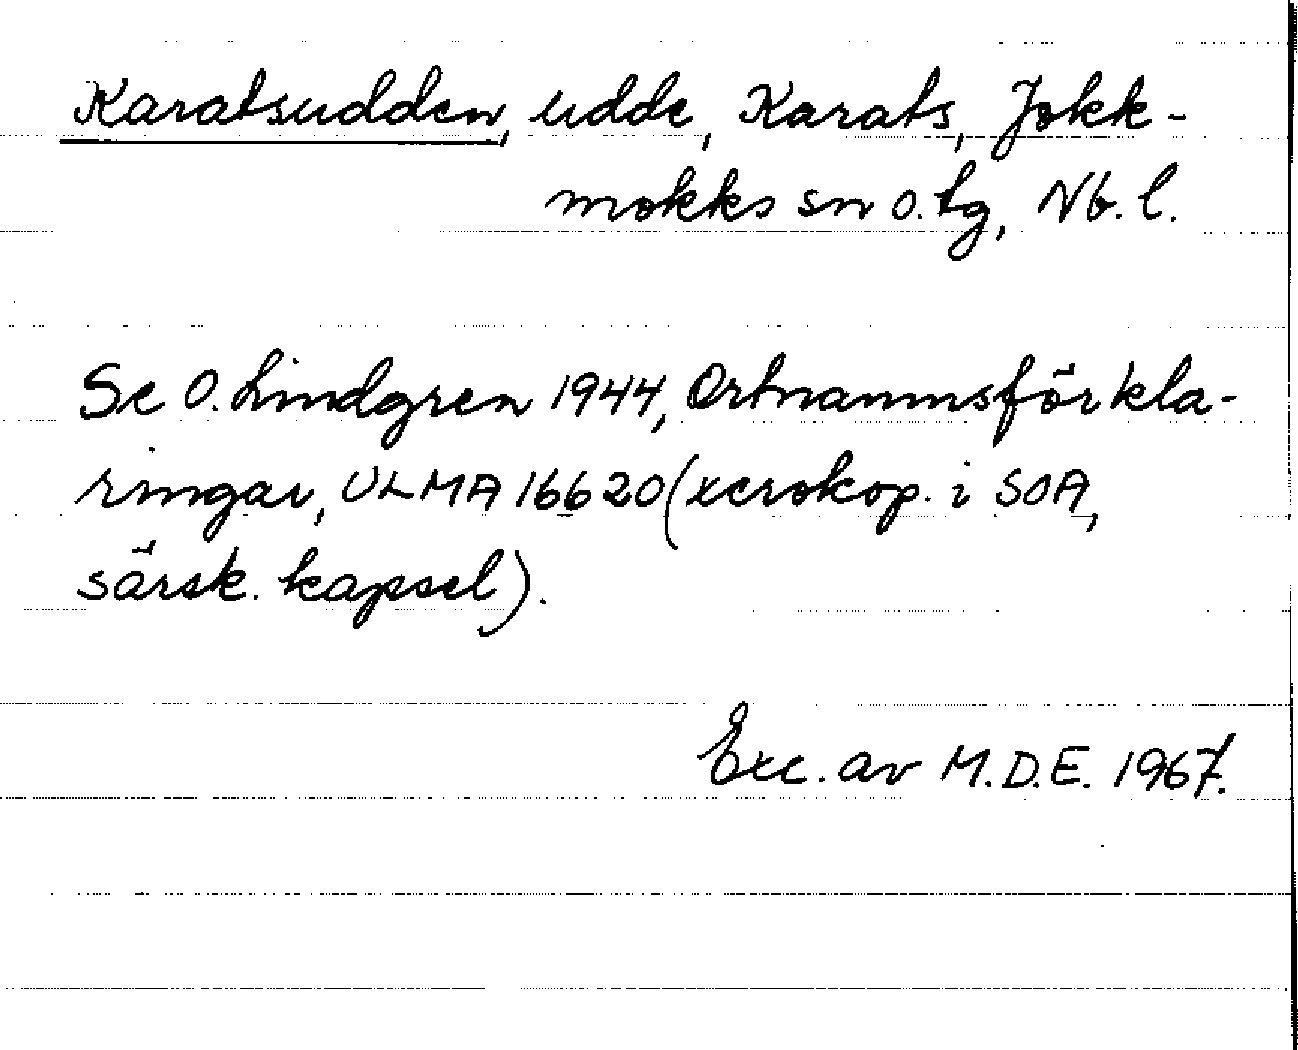 Karatsudden, udde, Karats, Jokk-
mokks sn o. tg, Nb. l.
Se O. Lindgren 1944, Ortnamnsförkla-
ringar, ULMA 16620 (xerokop. i SOA,
särsk. kapsel).
Exc. av M.D.E. 1967.